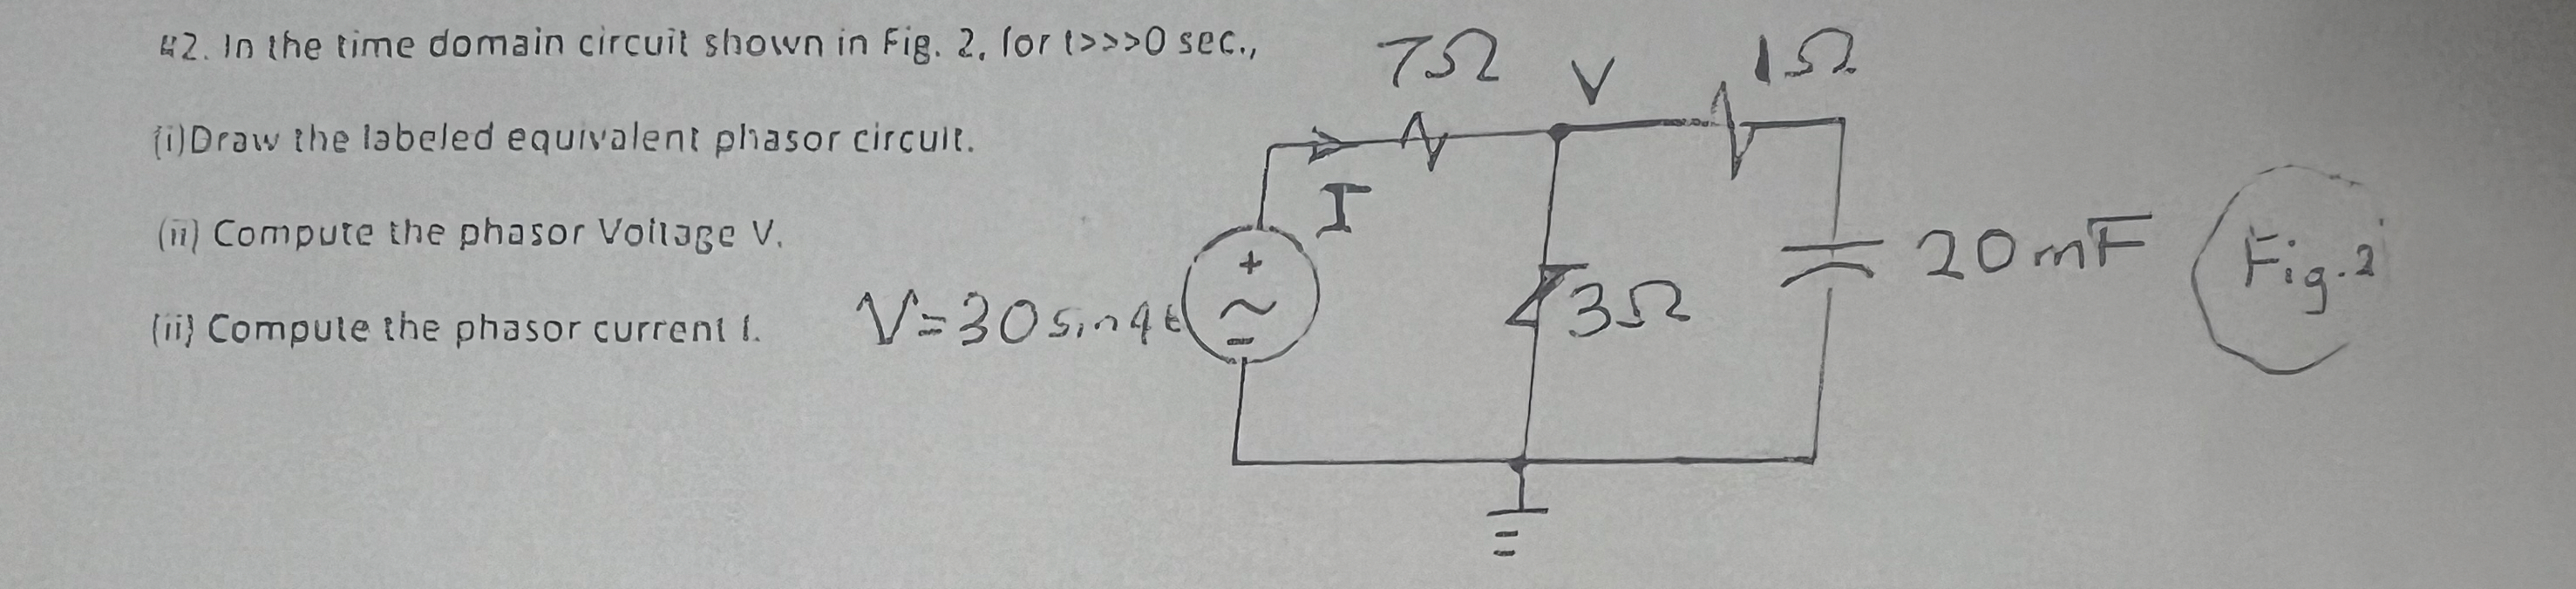 #2. In the time domain circuit shown in Fig. 2, for t>>>0 sec.,
(i)Draw the labeled equivalent phasor circuit.
(ii) Compute the phasor Voltage V.
(ii) Compute the phasor current I.
7Ω V 1Ω
I
+
-
V=30sin4t
3Ω
20mF
Fig.2